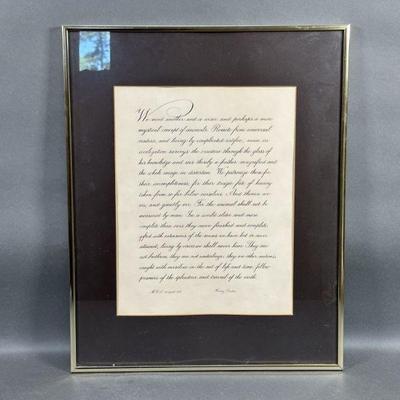 We need another and a wiser and perhaps a more
mystical concept of animals. Remote from universal
nature, and living by complicated artifice, man in
civilization surveys the creature through the glass of
his knowledge and sees thereby a feather magnified and
the whole image in distortion. We patronize them for
their incompleteness, for their tragic fate of having
taken form so far below ourselves. And therein we
err, and greatly err. For the animal shall not be
measured by man. In a world older and more
complete than ours they move finished and complete,
gifted with extensions of the senses we have lost or never
attained, living by voices we shall never hear. They are
not brethren, they are not underlings; they are other nations,
caught with ourselves in the net of life and time, fellow
prisoners of the splendour and travail of the earth.
Henry Beston